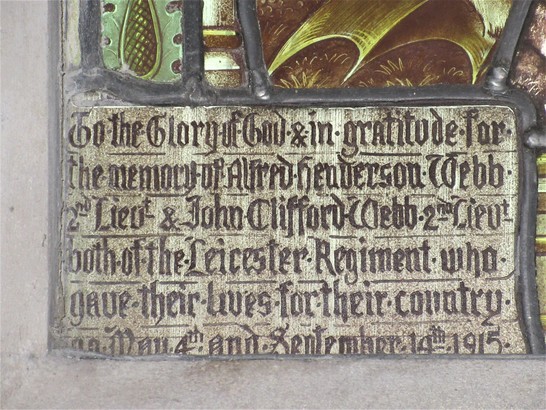 To the Glory of God · & in · gratitude · for ·
the · memory · of · Alfred · Henderson · Webb ·
2nd Lieut & John Clifford · Webb · 2nd Lieut
both · of · the · Leicester · Regiment · who ·
gave · their · lives · for their · country ·
on May 4th and · September · 14th · 1915 ·